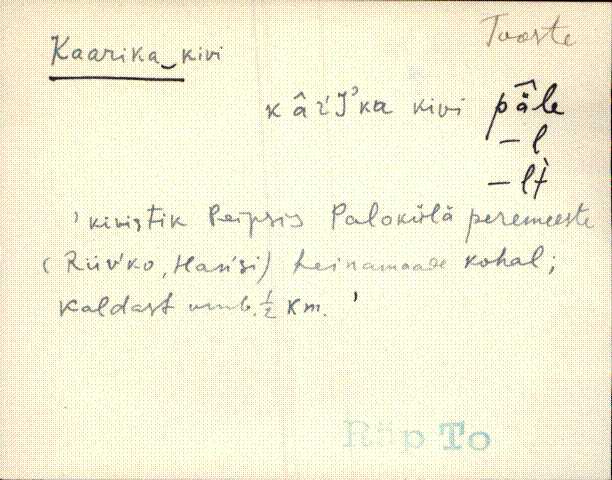 Tooste
Kaarika‿kivi
kâŕĭ'ka kivi pâ̈le
– l
– lt̀
' kivistik Peipsis Palokülä peremeeste
( Riiv'ko, Hansi) heinamaade kohal;
kaldast umb. ½ km. '
Räp To